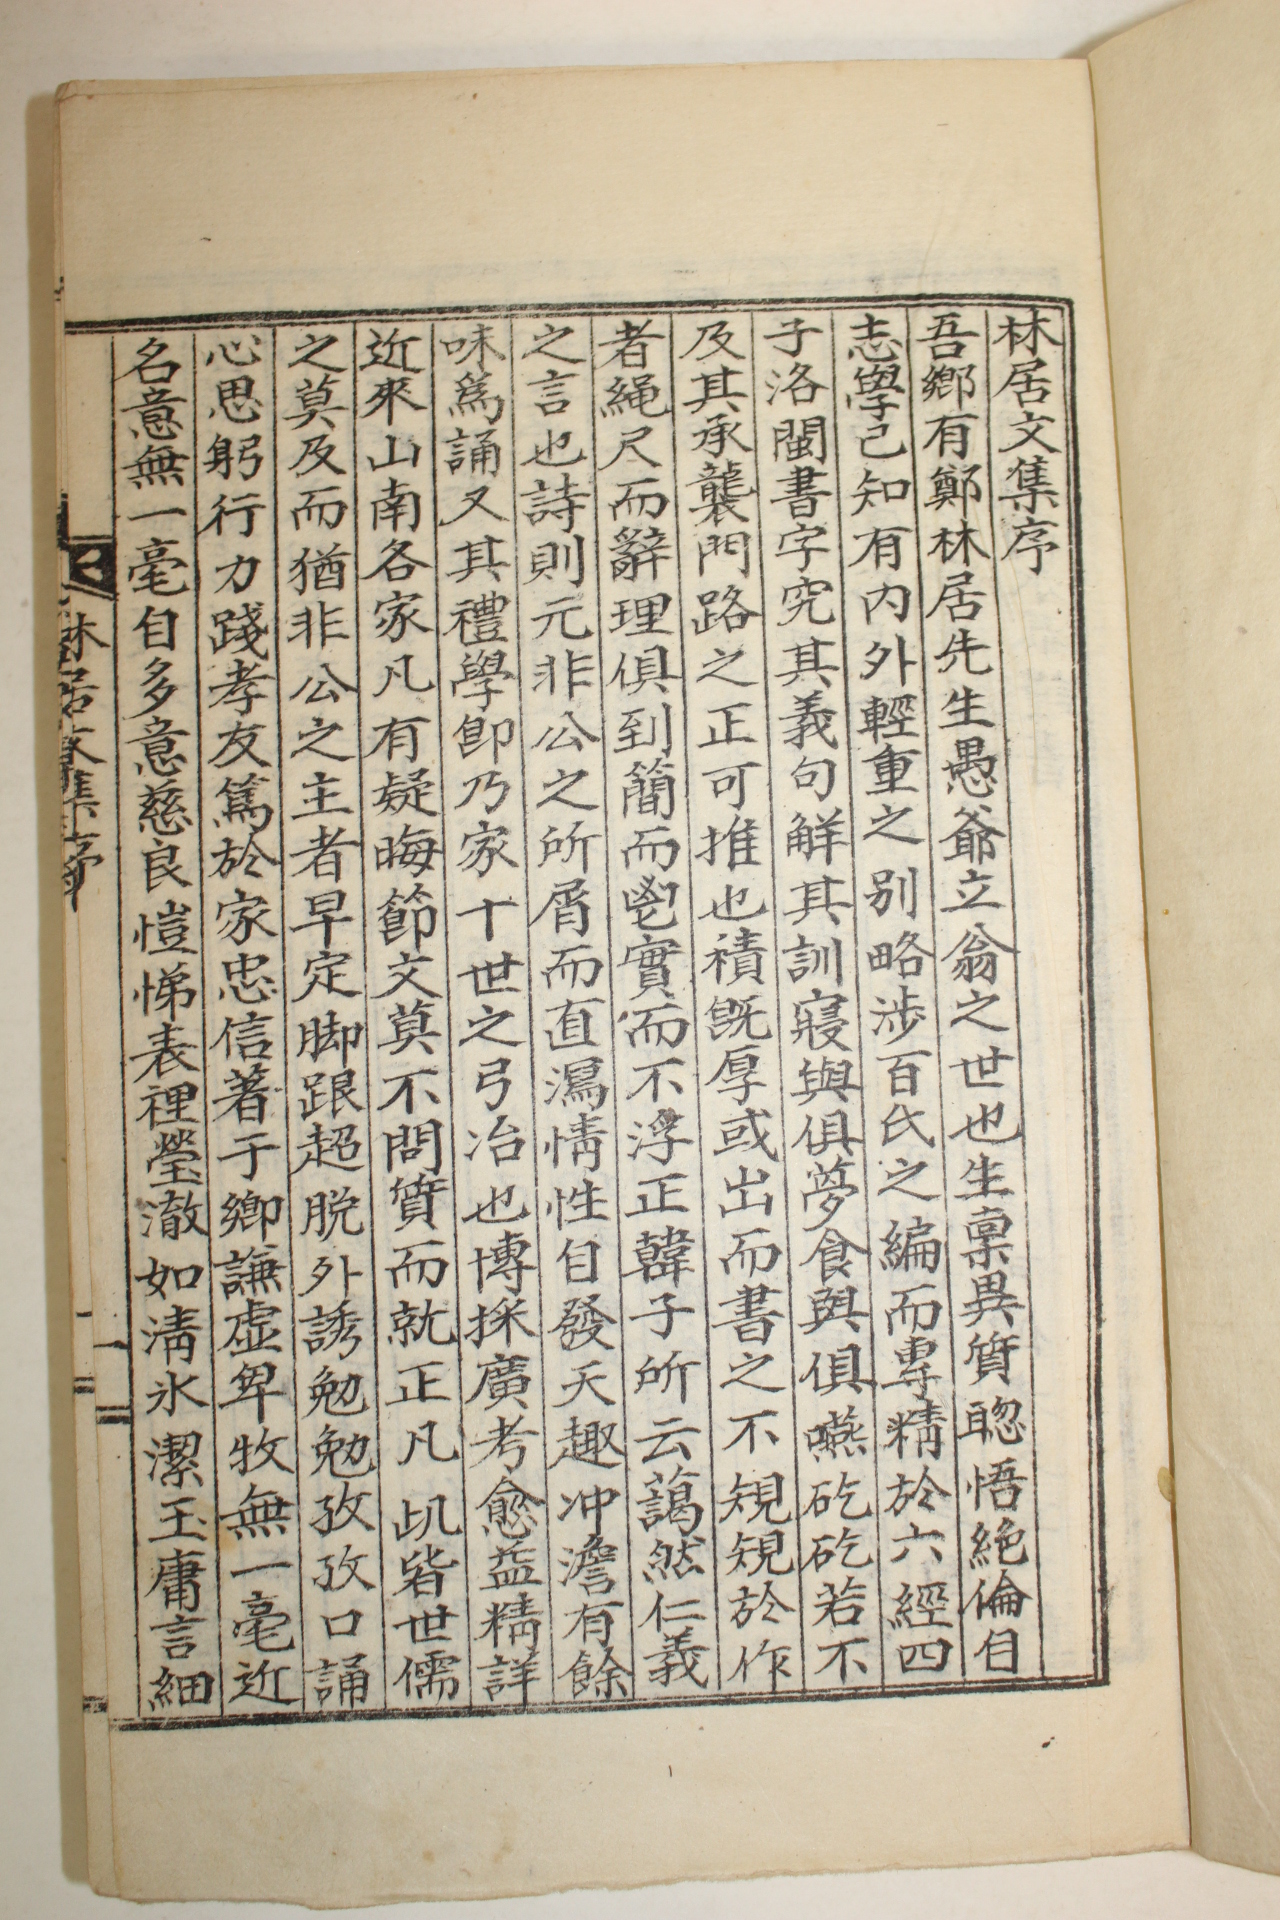 林居文集序
吾鄉有鄭林居先生愚爺立翁之世也生禀異質聰悟絶倫自
志學已知有內外輕重之別略涉百氏之編而專精於六經四
子洛閩書字究其義句觧其訓寢與俱夢食與俱嚥矻矻若不
及其承襲門路之正可推也積旣厚或出而書之不規規於作
者繩尺而辭理俱到簡而鬯實而不浮正韓子所云藹然仁義
之言也詩則元非公之所屑而直瀉情性自發天趣冲澹有餘
味爲誦又其禮學卽乃家十世之弓冶也博採廣考愈益精詳
近來山南各家凡有疑晦節文莫不問質而就正凡此皆世儒
之莫及而猶非公之主者早定脚跟超脫外誘勉勉孜孜口誦
心思躬行力踐孝友篤於家忠信著于鄉謙虛卑牧無一毫近
名意無一毫自多意慈良愷悌表裡瑩澈如淸氷潔玉庸言細
林居文集序
一